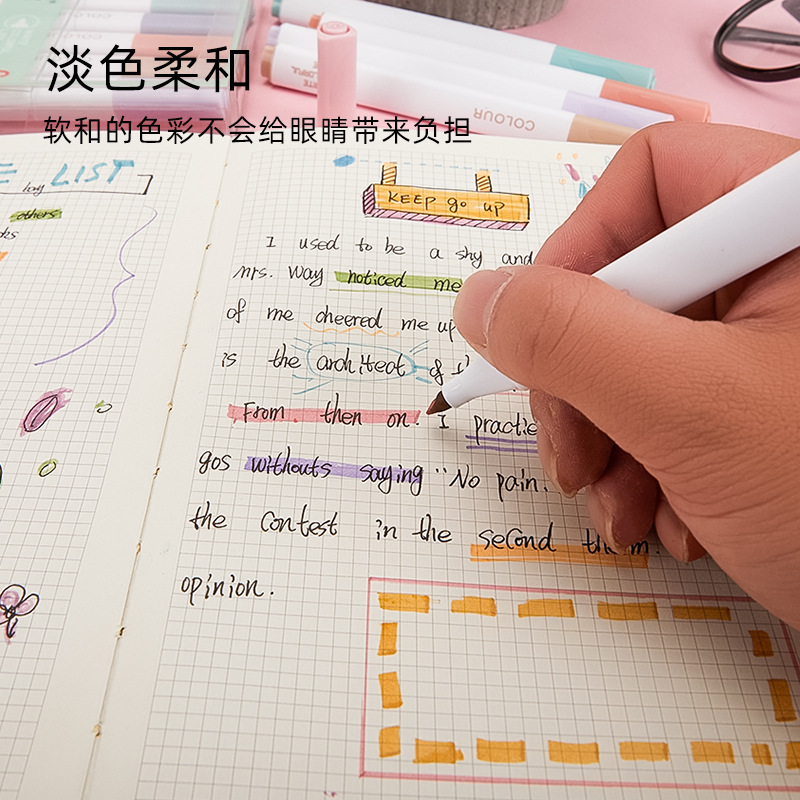 淡色柔和
软和的色彩不会给眼睛带来负担
COLOUR
LIST
others
KEEP go up
I used to be a shy and
Mrs. Way noticed me
of me cheered me up
is the architeot of
From then on. I practie
gos withouts saying "No pain.
the Contest in the second
opinion.